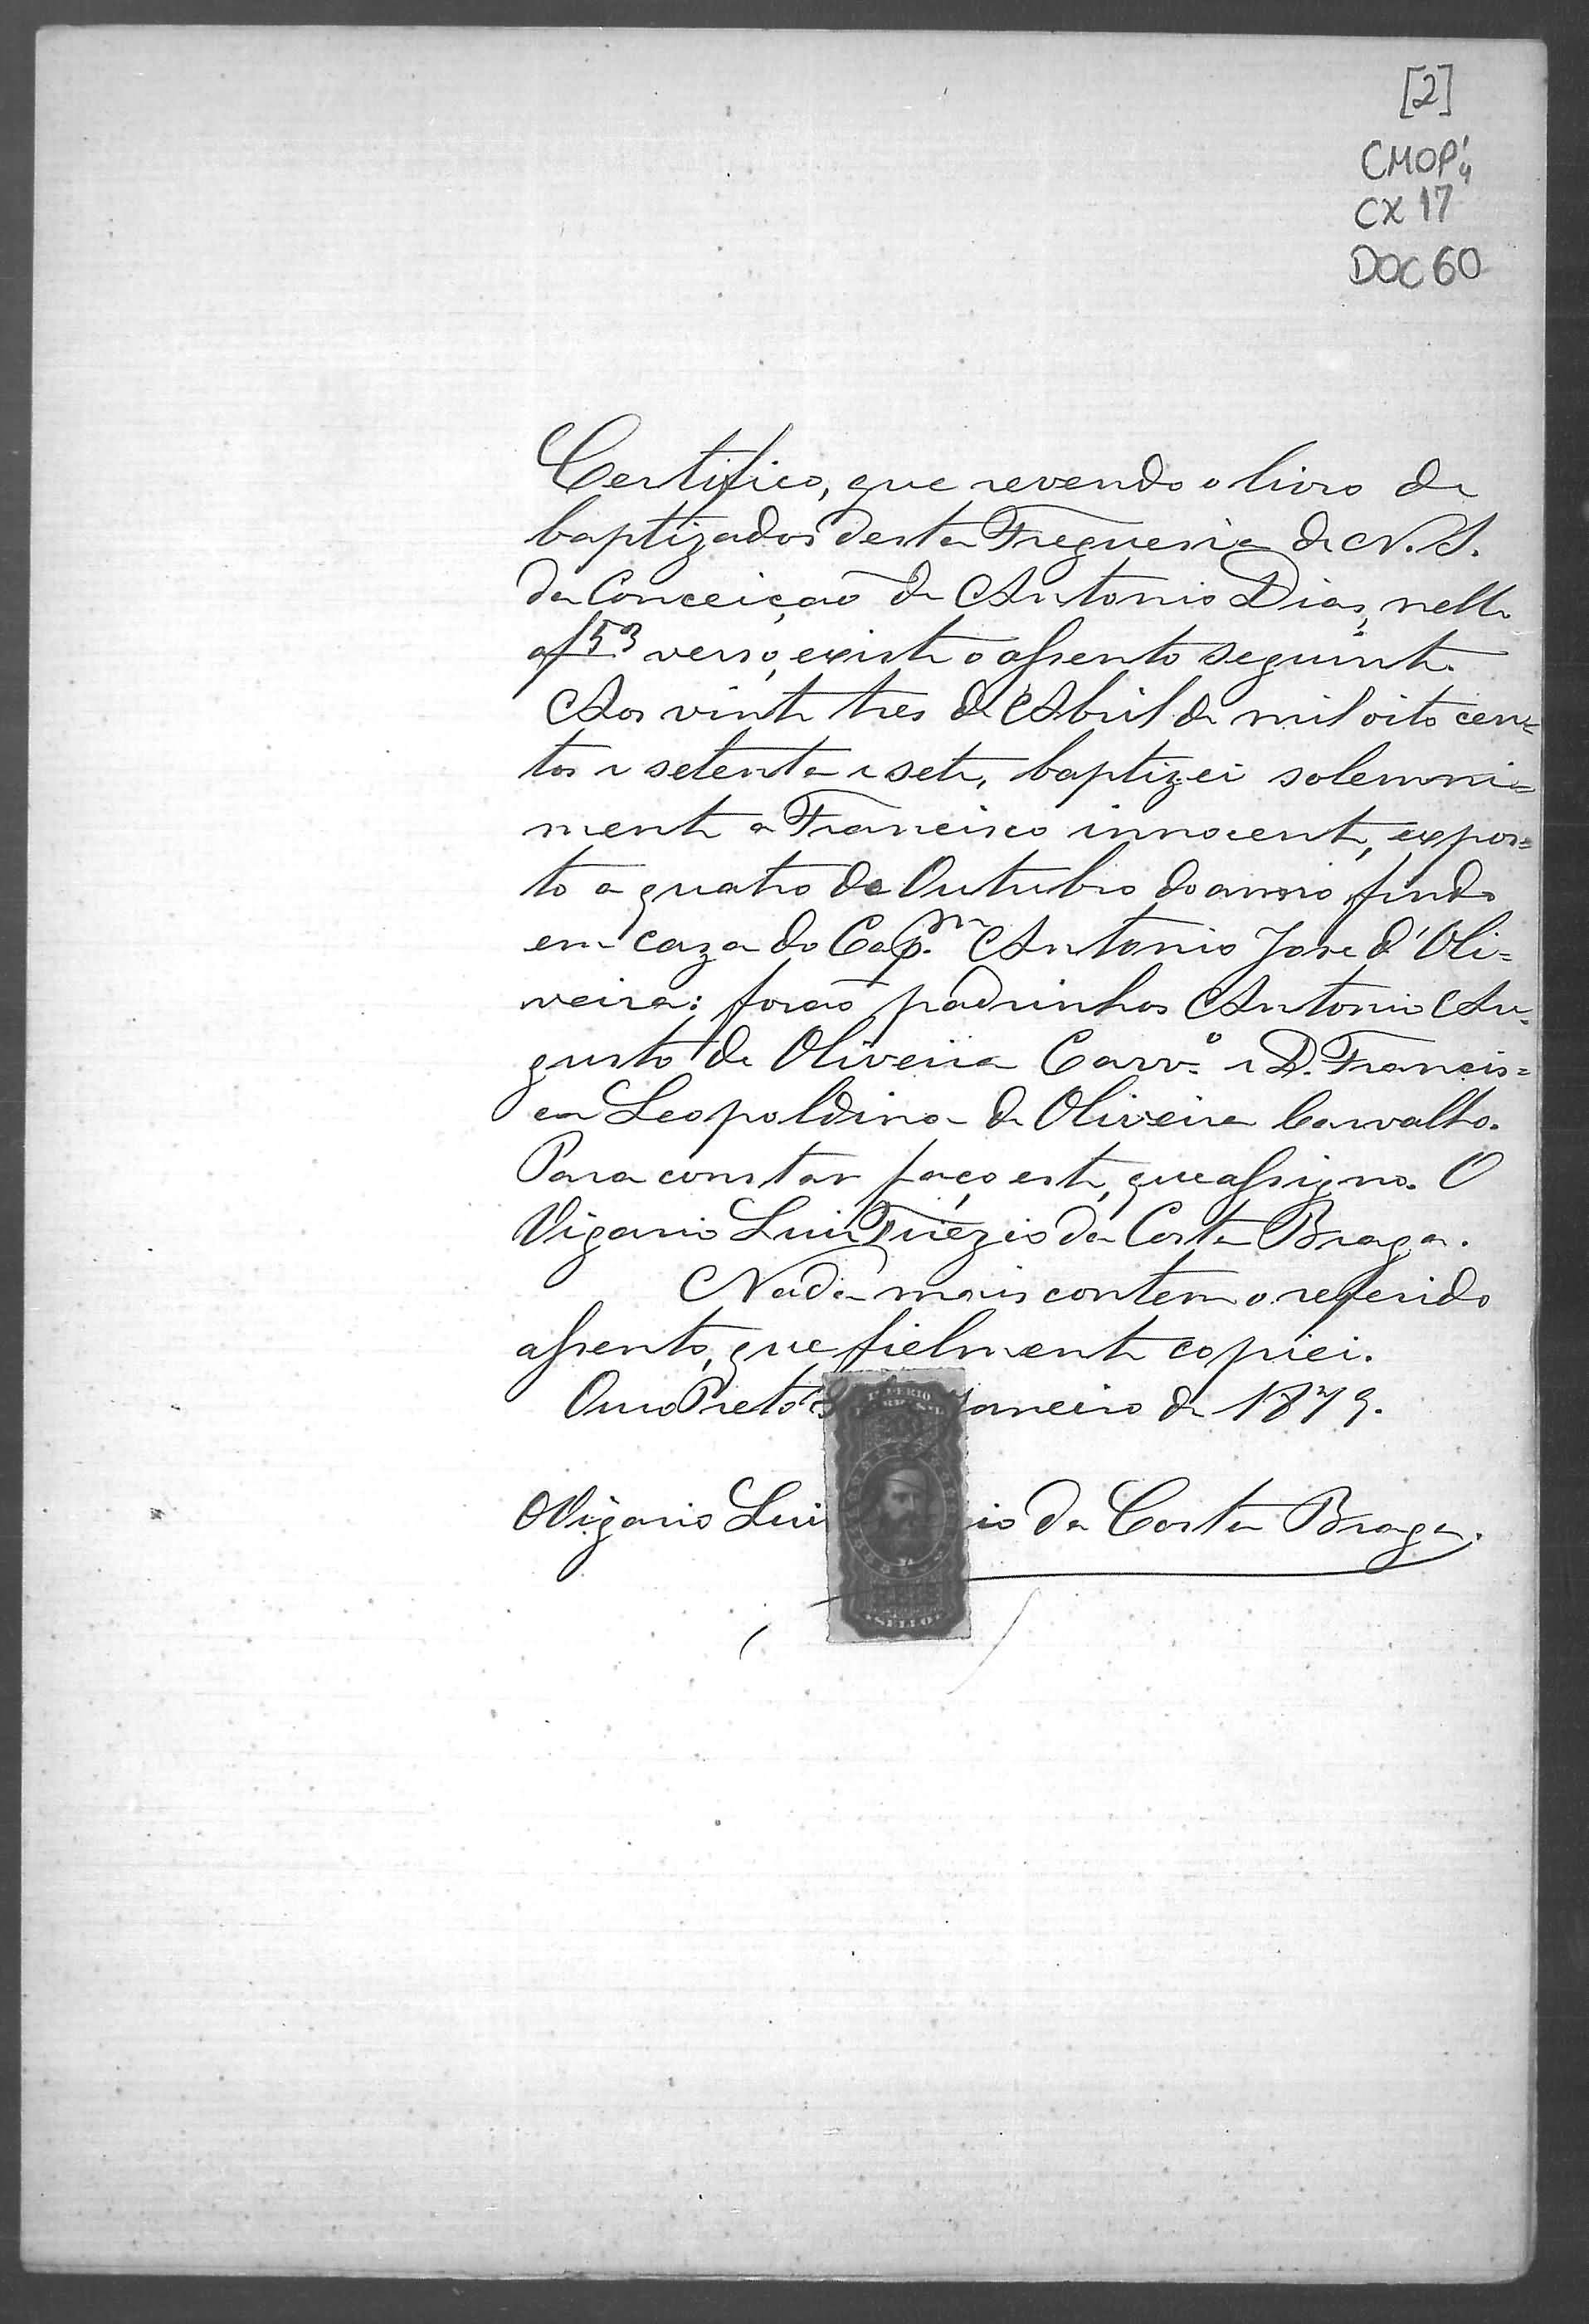 [2]
CMOP
CX 17
DOC 60
Certifico, que revendo o livro de
baptizados desta Freguesia de N. S.
da Conceição de Antonio Dias, nelle
af 53 verso, existe o assento seguinte.
Aos vinte tres de Abril de mil oito cen=
tos e setenta e sete, baptizei solemne=
mente a Francisco innocente, expos=
to a quatro de Outubro do anno findo
em caza do Cap.m Antonio Jose d'Oli=
veira: forão padrinhos Antonio Au=
gusto de Oliveira Carv.o e D. Francis=
ca Leopoldina de Oliveira Carvalho.
Para constar faço este, que assigno. O
Vigario Luis da Costa Braga.
Nada mais contem o referido
assento, que fielmente copiei.
Ouro Preto aneiro de 1879.
O Vigario Lui io da Costa Braga.
IMPERIO
SELLO